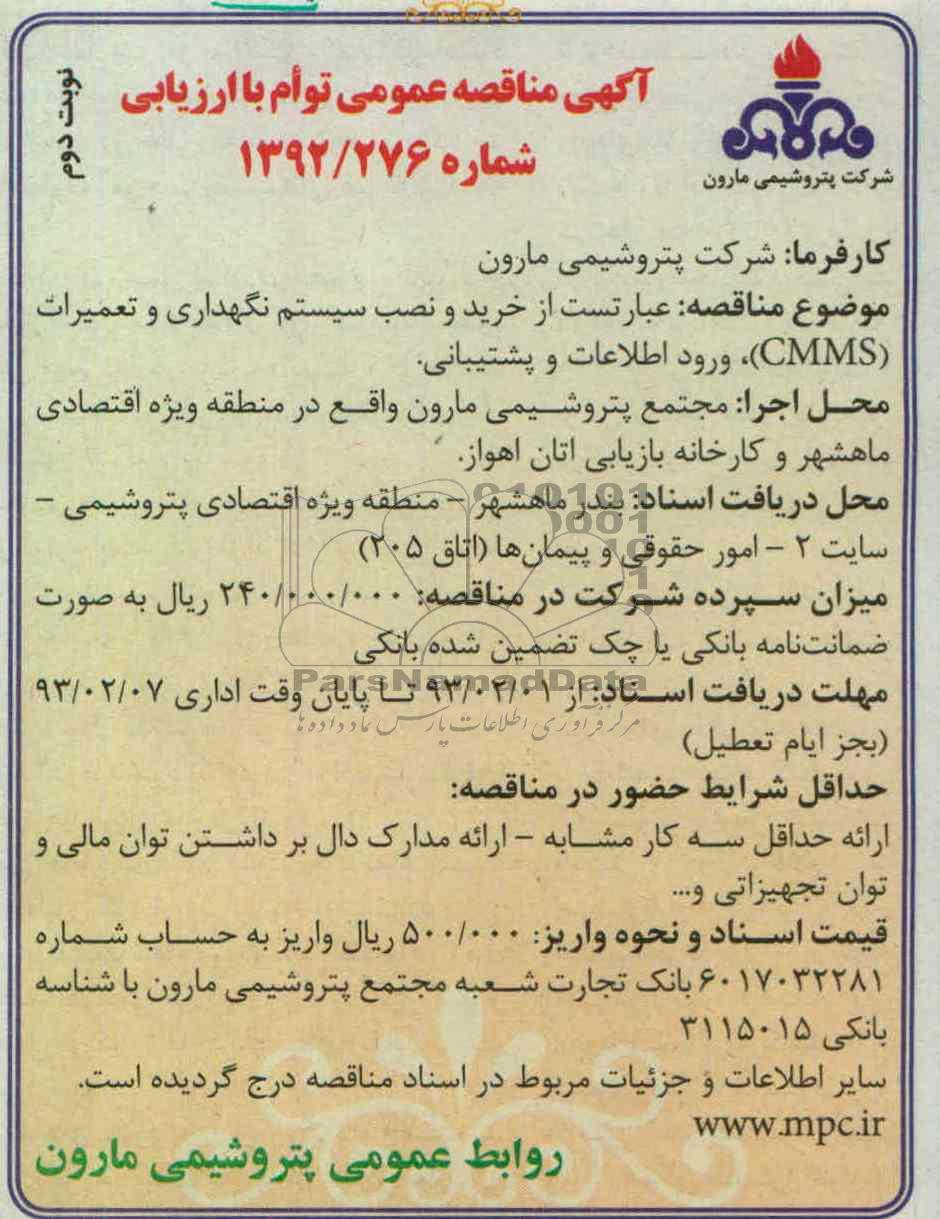 آگهی مناقصه عمومی توأم با ارزیابی
شماره ۱۳۹۲/۲۷۶
نوبت دوم
شرکت پتروشیمی مارون
کارفرما: شرکت پتروشیمی مارون
موضوع مناقصه: عبارتست از خرید و نصب سیستم نگهداری و تعمیرات
(CMMS)، ورود اطلاعات و پشتیبانی.
محل اجرا: مجتمع پتروشیمی مارون واقع در منطقه ویژه اقتصادی
ماهشهر و کارخانه بازیابی اتان اهواز.
محل دریافت اسناد: بندر ماهشهر – منطقه ویژه اقتصادی پتروشیمی –
سایت ۲ – امور حقوقی و پیمان‌ها (اتاق ۲۰۵)
میزان سپرده شرکت در مناقصه: ۲۴۰/۰۰۰/۰۰۰ ریال به صورت
ضمانت‌نامه بانکی یا چک تضمین شده بانکی
مهلت دریافت اسناد: از ۹۳/۰۲/۰۱ تا پایان وقت اداری ۹۳/۰۲/۰۷
(بجز ایام تعطیل)
حداقل شرایط حضور در مناقصه:
ارائه حداقل سه کار مشابه – ارائه مدارک دال بر داشتن توان مالی و
توان تجهیزاتی و...
قیمت اسناد و نحوه واریز: ۵۰۰/۰۰۰ ریال واریز به حساب شماره
۶۰۱۷۰۳۲۲۸۱ بانک تجارت شعبه مجتمع پتروشیمی مارون با شناسه
بانکی ۳۱۱۵۰۱۵
سایر اطلاعات و جزئیات مربوط در اسناد مناقصه درج گردیده است.
www.mpc.ir
روابط عمومی پتروشیمی مارون
ParsNamadData
مرکز فرآوری اطلاعات پارس نماد داده ها